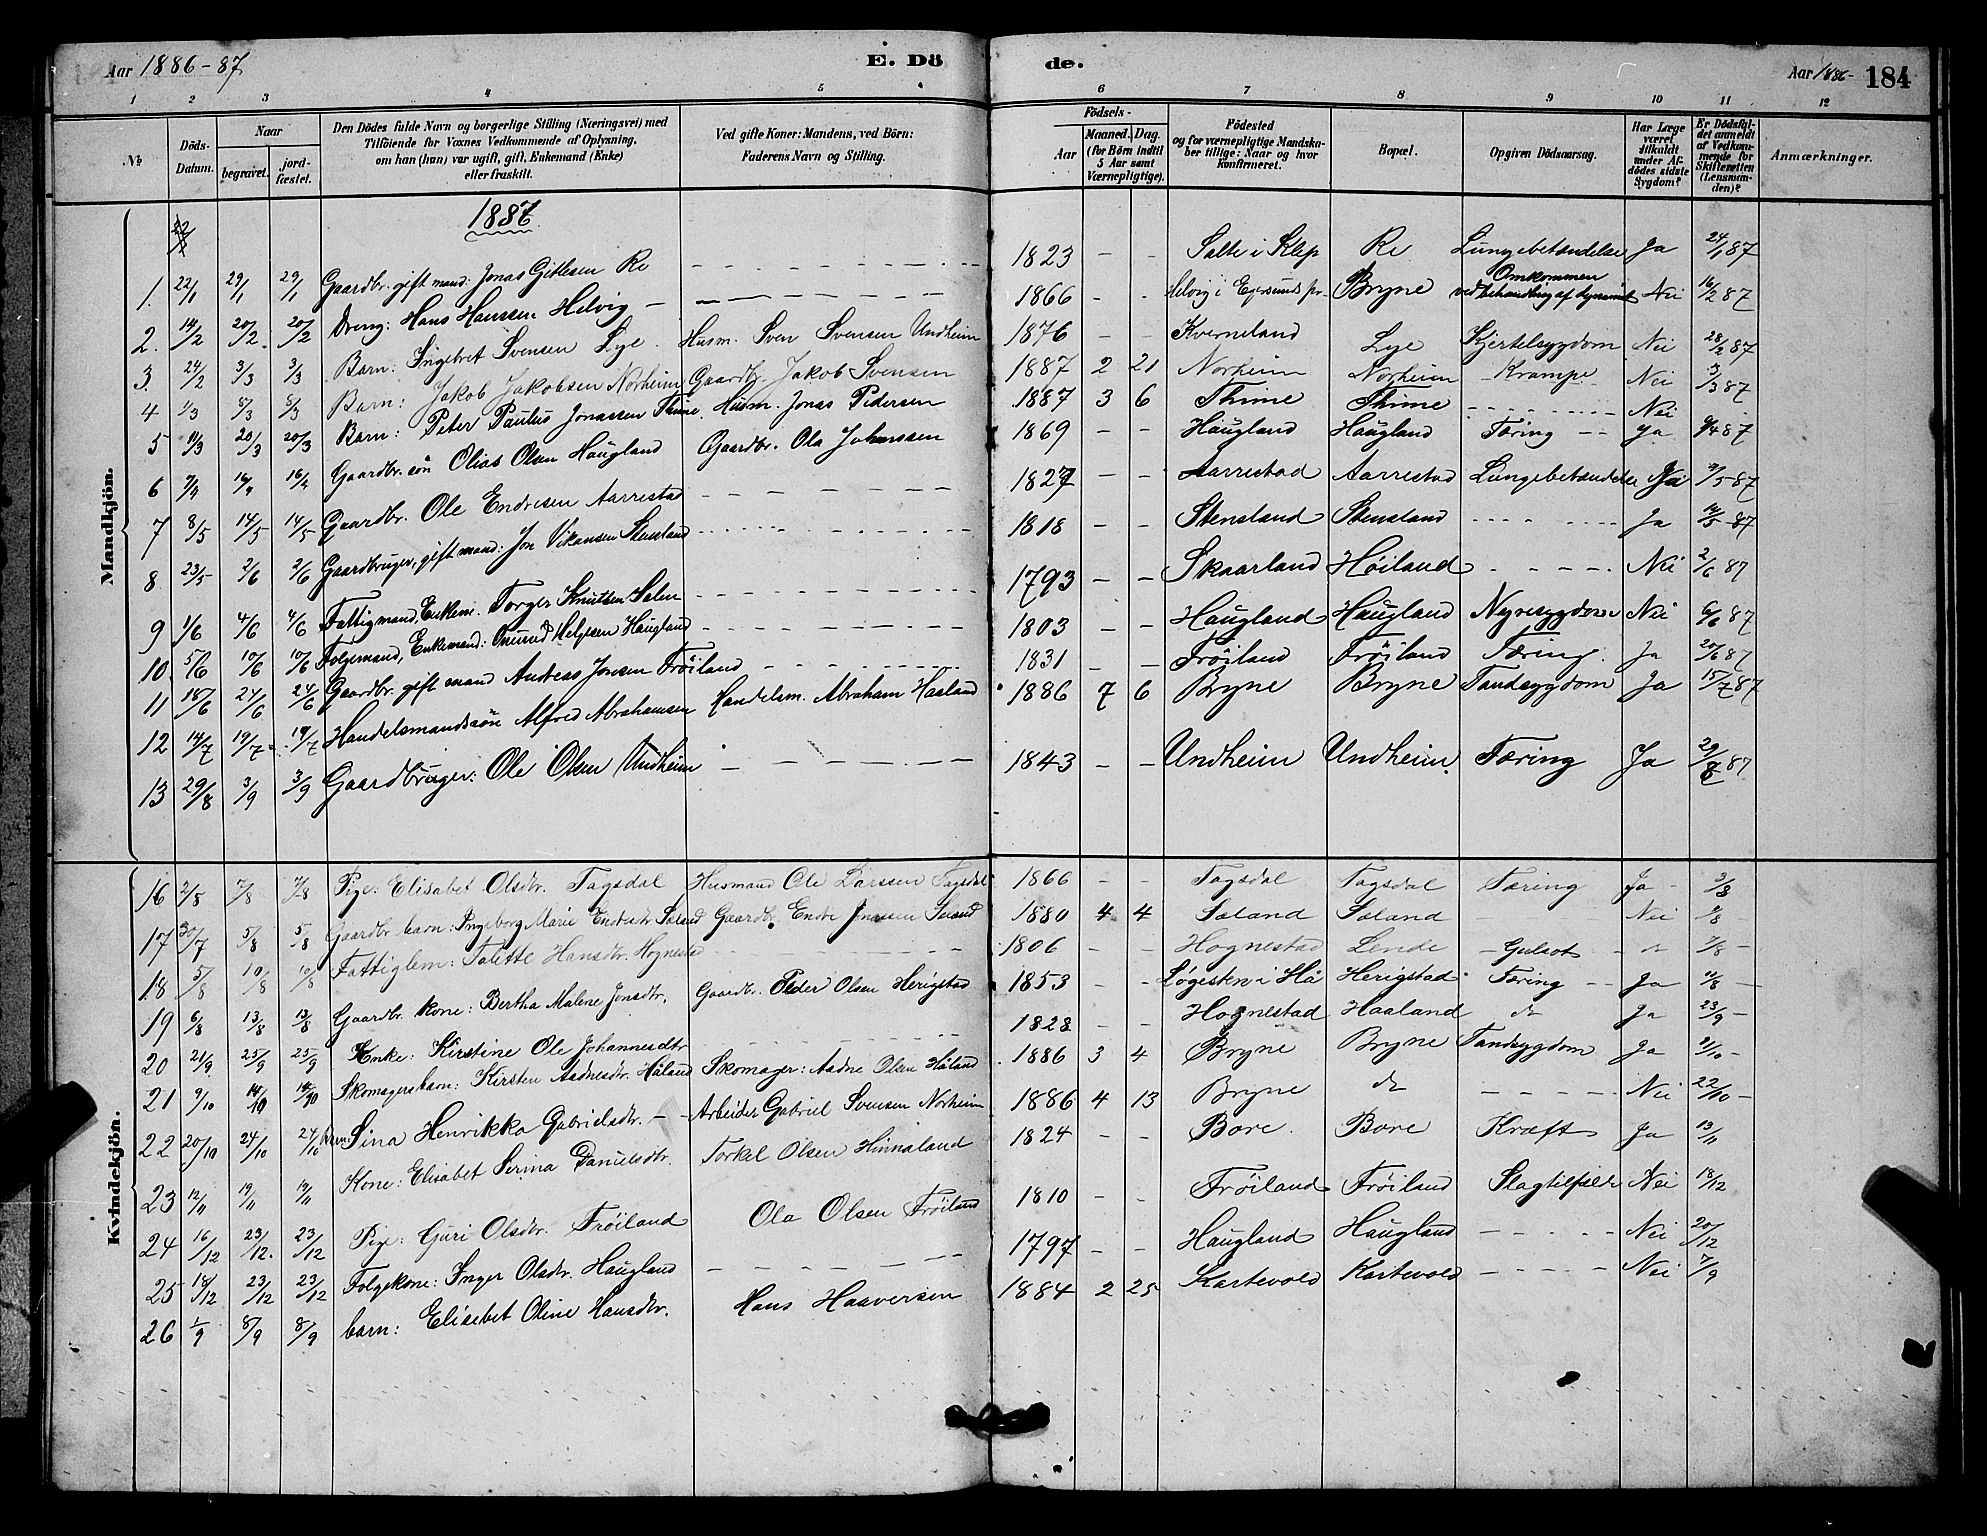 Aar 1886-87
E. Dö
de.
Aar 1886-
184
1 2 3 4 5 4 6 7 8 9 10 11 12
№
Döds-Datum.
Naar
begravet.
jord-fæstet.
Den Dödes fulde Navn og borgerlige Stilling (Næringsvei) med
Tilföiende for Voxnes Vedkommende af Oplysning,
om han (hun) var ugift, gift, Enkemand (Enke)
eller fraskilt.
Ved gifte Koner: Mandens, ved Börn:
Faderens Navn og Stilling.
Födsels-
Aar
Maaned. Dag.
(for Börn indtil
5 Aar samt
Værnepligtige).
Födested
og for værnepligtige Mandska-
ber tillige: Naar og hvor
konfirmeret.
Bopæl.
Opgiven Dödsaarsag.
Har Læge
været
tilkaldt
under Af-
dödes sidste
Sygdom?
Er Dödsfal-
det anmeldt
af Vedkom-
mende for
Skifteretten
(Lensman-
den)?
Anmærkninger.
Mandkjön.
1887
1. 22/1 29/1 29/1 Gaardbr. gift mand: Jonas Gitlesen Re - - - 1823 - - Salte i Klep Re Lungebetændelse Ja 24/1 87
2. 14/2 20/2 20/2 Dreng: Hans Hanssen Helvig - - - 1866 - - Helvig i Egersunds pr. Bryne Omkommen ved behandling af dynamit Nei 16/2 87
3. 24/2 3/3 3/3 Barn: Ingebret Svensen Lye Husm. Sven Svensen Undheim 1876 - - Kverneland Lye Kjertelsygdom Nei 28/2 87
4 1/3 8/3 8/3 Barn: Jakob Jakobsen Norheim Gaardbr. Jakob Svensen 1887 2 21 Norheim Norheim - Krampe Nei 3/3 87
5 11/3 20/3 20/3 Barn: Peter Paulus Jonassen Thime. Husm. Jonas Pedersen 1887 3 6 Thime Thime - - - Nei
6 7/4 16/4 16/4 Gaardbr. søn Olias Olsen Haugland Gaardbr. Ola Johnssen 1869 - - Haugland Haugland Tæring - - Ja 9/4 87
7 8/5 14/5 14/5 Gaardbr. Ole Endresen Aarrestad - - - 1827 - - Aarrestad Aarrestad Lungebetændelse Ja 9/5 87
8 23/5 2/6 2/6 Gaardbruger, gift mand: Jon Vikansen Stensland - - - 1818 - - Stensland Stensland - - - Ja 87
9 1/6 4/6 4/6 Fattigmand, Enkem. Torger Knutsen Salen - - - 1793 - - Skaarland Høiland - - - Nei 2/6 87
10. 5/6 10/6 10/6 Folgemand, Enkemand: Omund Helgesen Haugland - - - 1803 - - Haugland Haugland Nyresygdom Nei 6/6 87
11 18/6 24/6 24/6 Gaardbr. gift mand Andreas Jonsen Frøiland - - - 1831 - - Frøiland Frøiland Tæring. Ja 20/6 87
12 14/7 19/7 19/7 Handelsmandssøn Alfred Abrahamsen Handelsm. Abraham Haaland 1886 7 6 Bryne Bryne Tandsygdom Ja 15/7 87
13 29/8 3/9 3/9 Gaardbruger: Ole Olsen Undheim - - - 1843 - - Undheim Undheim. Tæring Ja 29/8 87
Kvindekjön.
16 2/8 7/8 7/8 Pige: Elisabet Olsdtr. Tagsdal Husmand Ole Larssen Tagsdal 1866 - - Tagsdal Tagsdal Tæring Ja - 3/8
17 30/7 5/8 5/8 Gaardbr. barn: Ingeborg Marie Endresdtr Sæland Gaardbr. Endre Jonassen Sæland 1880 4 4 Sæland Sæland Nei /8
18 5/8 10/8 10/8 Fattiglem: Talette Hansdtr. Hognestad - - - 1806 - - Hognestad Lende - Gulsot - 7/8 -
19 6/8 13/8 13/8 Gaardbr. kone: Bertha Malene Jonsdtr. Gaardbr. Peder Olsen Herigstad 1853 - - Løgesten i Hå Herigstad Tæring - - Ja /8 -
20 21/9 25/9 25/9 Enke: Kirstine Ole Johannesdtr - - - 1828 - - Hognestad Haaland do Ja 23/9 -
21 9/10 14/10 14/10 Skomagersbarn: Kirsten Aadnesdtr. Håland Skomager: Aadne Olsen Håland 1886 3 4 Bryne Bryne Tandsygdom Ja 11/10 -
22 20/10 24/10 24/10 barn: Sina Henrikka Gabrielsdtr. - - Arbeider Gabriel Svensen Norheim 1886 4 13 Bryne do - - - Nei 22/10 -
23 12/11 19/11 19/11 Kone: Elisabet Serina Danielsdtr. Torkel Olsen Hinnaland 1824 - - Bore. Bore Kræft Ja 13/11
24 16/12 23/12. 23/12 Pige: Guri Olsdtr. Frøiland Ola Olsen Frøiland 1810 - - Frøiland Frøiland Slagtilfælde Nei 18/12
25 18/12 23/12 23/12 Folgekone: Inger Olsdtr. Haugland - - - 1797 - - Haugland Haugland - - - Nei 20/12
26 1/9 8/9 8/9 barn: Elisebet Oline Hansdtr. Hans Haaversen 1884 2 25 Kartevold Kartevold - - - Nei 7/9